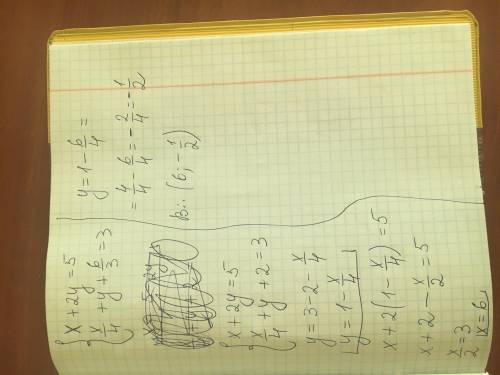 { x + 2y = 5
x/4 + y + 6/3 = 3
{ x + 2y = 5
x/4 + y + 2 = 3
y = 3 - 2 - x/4
y = 1 - x/4
x + 2(1 - x/4) = 5
x + 2 - x/2 = 5
x/2 = 3
x = 6
y = 1 - 6/4 =
= 4/4 - 6/4 = -2/4 = -1/2
В:: (6; -1/2)